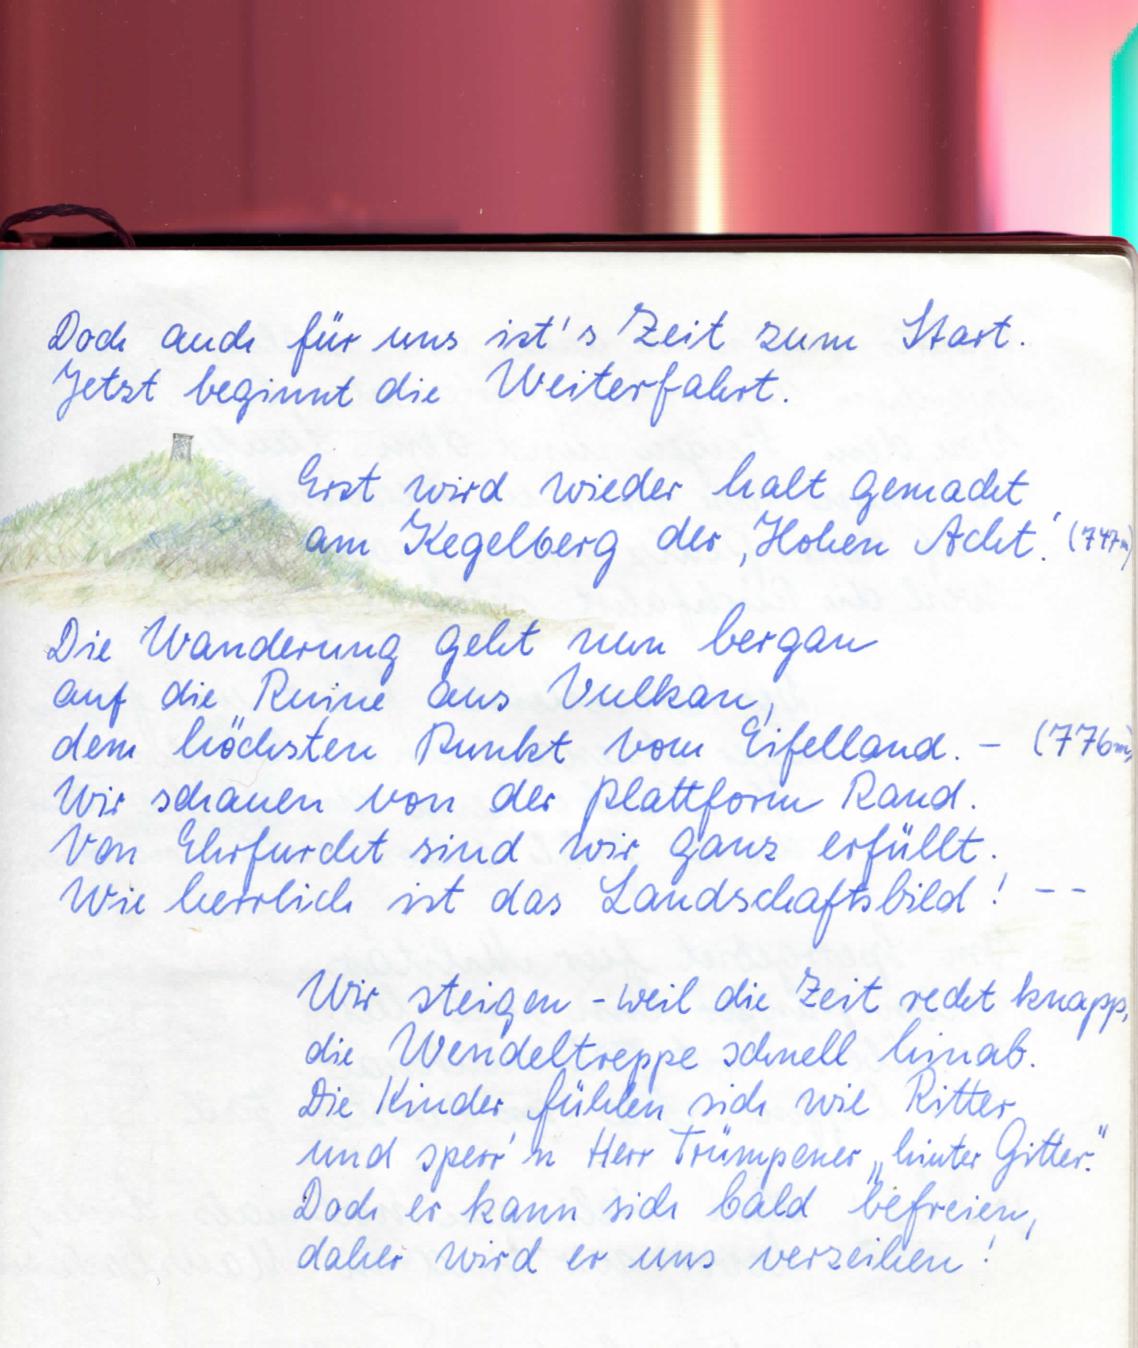 Doch auch für uns ist's Zeit zum Start.
Jetzt beginnt die Weiterfahrt.
Erst wird wieder halt gemacht
am Kegelberg der ‚Hohen Acht'. (747m)
Die Wanderung geht nun bergan
auf die Ruine aus Vulkan,
dem höchsten Punkt vom Eifelland. – (776m)
Wir schauen von der Plattform Rand.
Von Ehrfurcht sind wir ganz erfüllt.
Wie herrlich ist das Landschaftsbild! – –
Wir steigen – weil die Zeit recht knapp,
die Wendeltreppe schnell hinab.
Die Kinder fühlen sich wie Ritter
und sperr'n Herr Trümpener „hinter Gitter."
Doch er kann sich bald befreien,
daher wird er uns verzeihen!